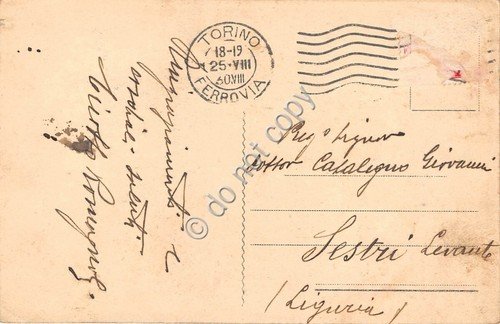 TORINO
18-19
25·VIII
30.VIII
FERROVIA
Ringraziamenti e
cordiali saluti
Preg. Signor
Dottor Casalegno Giovanni
Sestri Levante
(Liguria)
© do not copy